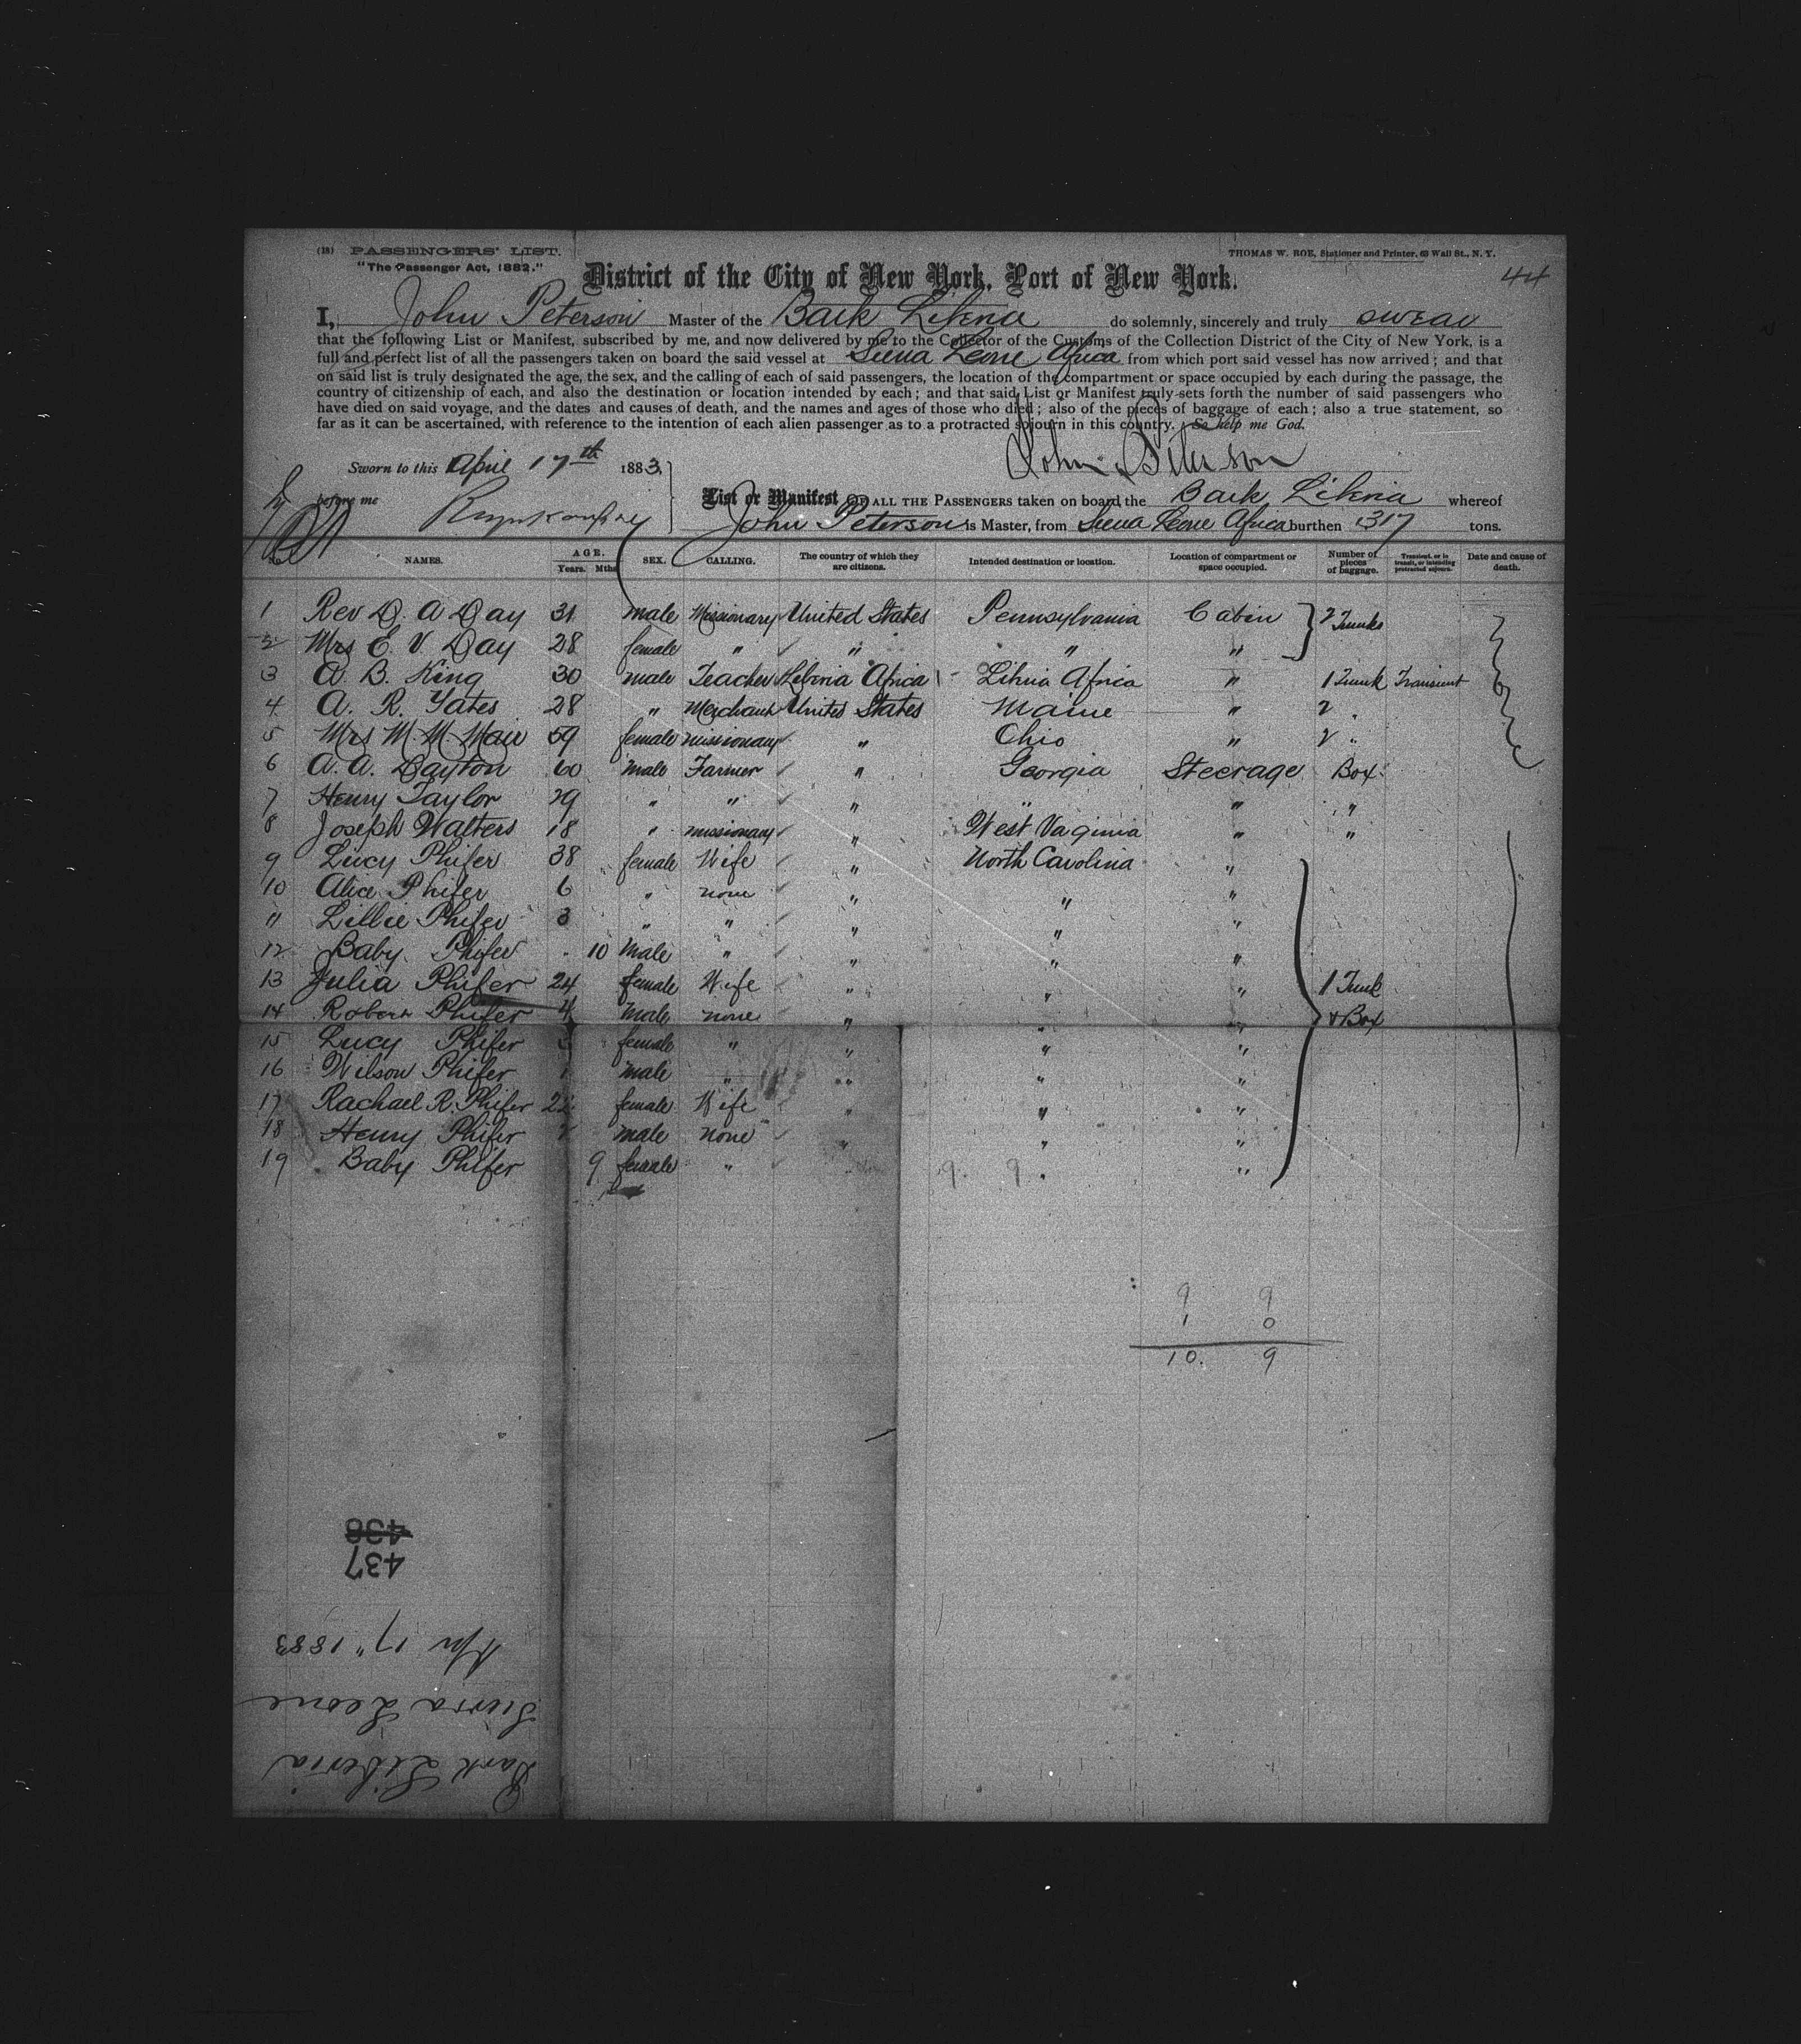 (18) PASSENGERS' LIST.
"The Passenger Act, 1882."
THOMAS W. ROE, Stationer and Printer, 63 Wall St., N. Y.
44
District of the City of New York, Port of New York.
I, John Peterson Master of the Bark Liberia do solemnly, sincerely and truly swear
that the following List or Manifest, subscribed by me, and now delivered by me to the Collector of the Customs of the Collection District of the City of New York, is a
full and perfect list of all the passengers taken on board the said vessel at Sierra Leone Africa from which port said vessel has now arrived; and that
on said list is truly designated the age, the sex, and the calling of each of said passengers, the location of the compartment or space occupied by each during the passage, the
country of citizenship of each, and also the destination or location intended by each; and that said List or Manifest truly sets forth the number of said passengers who
have died on said voyage, and the dates and causes of death, and the names and ages of those who died; also of the pieces of baggage of each; also a true statement, so
far as it can be ascertained, with reference to the intention of each alien passenger as to a protracted sojourn in this country. So help me God.
John Peterson
Sworn to this April 17th 1883,
before me
List or Manifest OF ALL THE PASSENGERS taken on board the Bark Liberia whereof
John Peterson is Master, from Sierra Leone Africa burthen 317 tons.
NAMES. AGE. Years. Mths. SEX. CALLING. The country of which they are citizens. Intended destination or location. Location of compartment or space occupied. Number of pieces of baggage. Transient, or in transit, or intending protracted sojourn. Date and cause of death.
1 Rev D. A Day 31 male Missionary United States Pennsylvania Cabin 2 Trunks
2 Mrs E. V. Day 28 female " " " "
3 A. B. King 30 male Teacher Liberia Africa Liberia Africa " 1 Trunk Transient
4 A. R. Yates 28 " Merchant United States Maine " 2 "
5 Mrs M. M. Mair 59 female missionary " Ohio " 2 "
6 A. A. Dayton 60 male Farmer " Georgia Steerage Box
7 Henry Taylor 29 " " " " " "
8 Joseph Walters 18 " missionary " West Virginia " "
9 Lucy Phifer 38 female Wife " North Carolina "
10 Alice Phifer 6 " none " " "
11 Lillie Phifer 3 " " " " "
12 Baby Phifer 10 male " " " "
13 Julia Phifer 24 female Wife " " " 1 Trunk
14 Robert Phifer 4 male none " " " & Box
15 Lucy Phifer female " " " "
16 Wilson Phifer 1 male " " " "
17 Rachael R. Phifer female Wife " " "
18 Henry Phifer male none " " "
19 Baby Phifer 9 female " " " "
9 9
9 9
1 0
10. 9
438
437
Apr 17" 1883
Sierra Leone
Bark Liberia